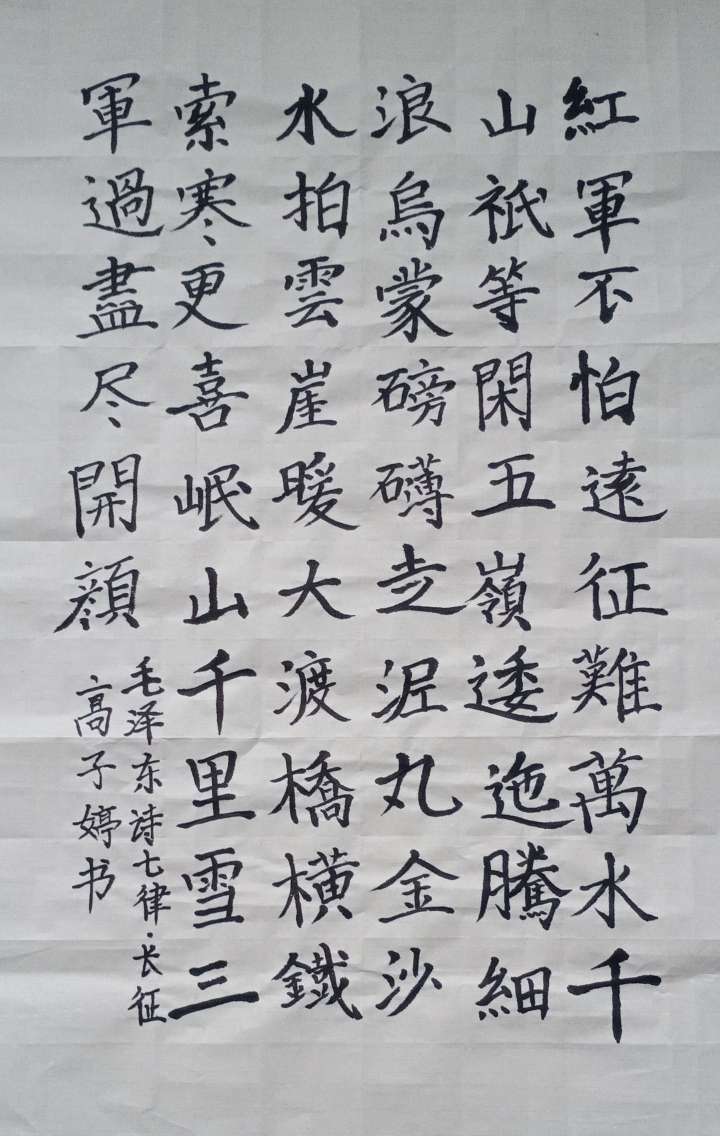 紅軍不怕遠征難萬水千
山祇等閑五嶺逶迤騰細
浪烏蒙磅礴走泥丸金沙
水拍雲崖暖大渡橋橫鐵
索寒更喜岷山千里雪三
軍過盡尽開顔
毛泽东诗七律·长征
高子婷书